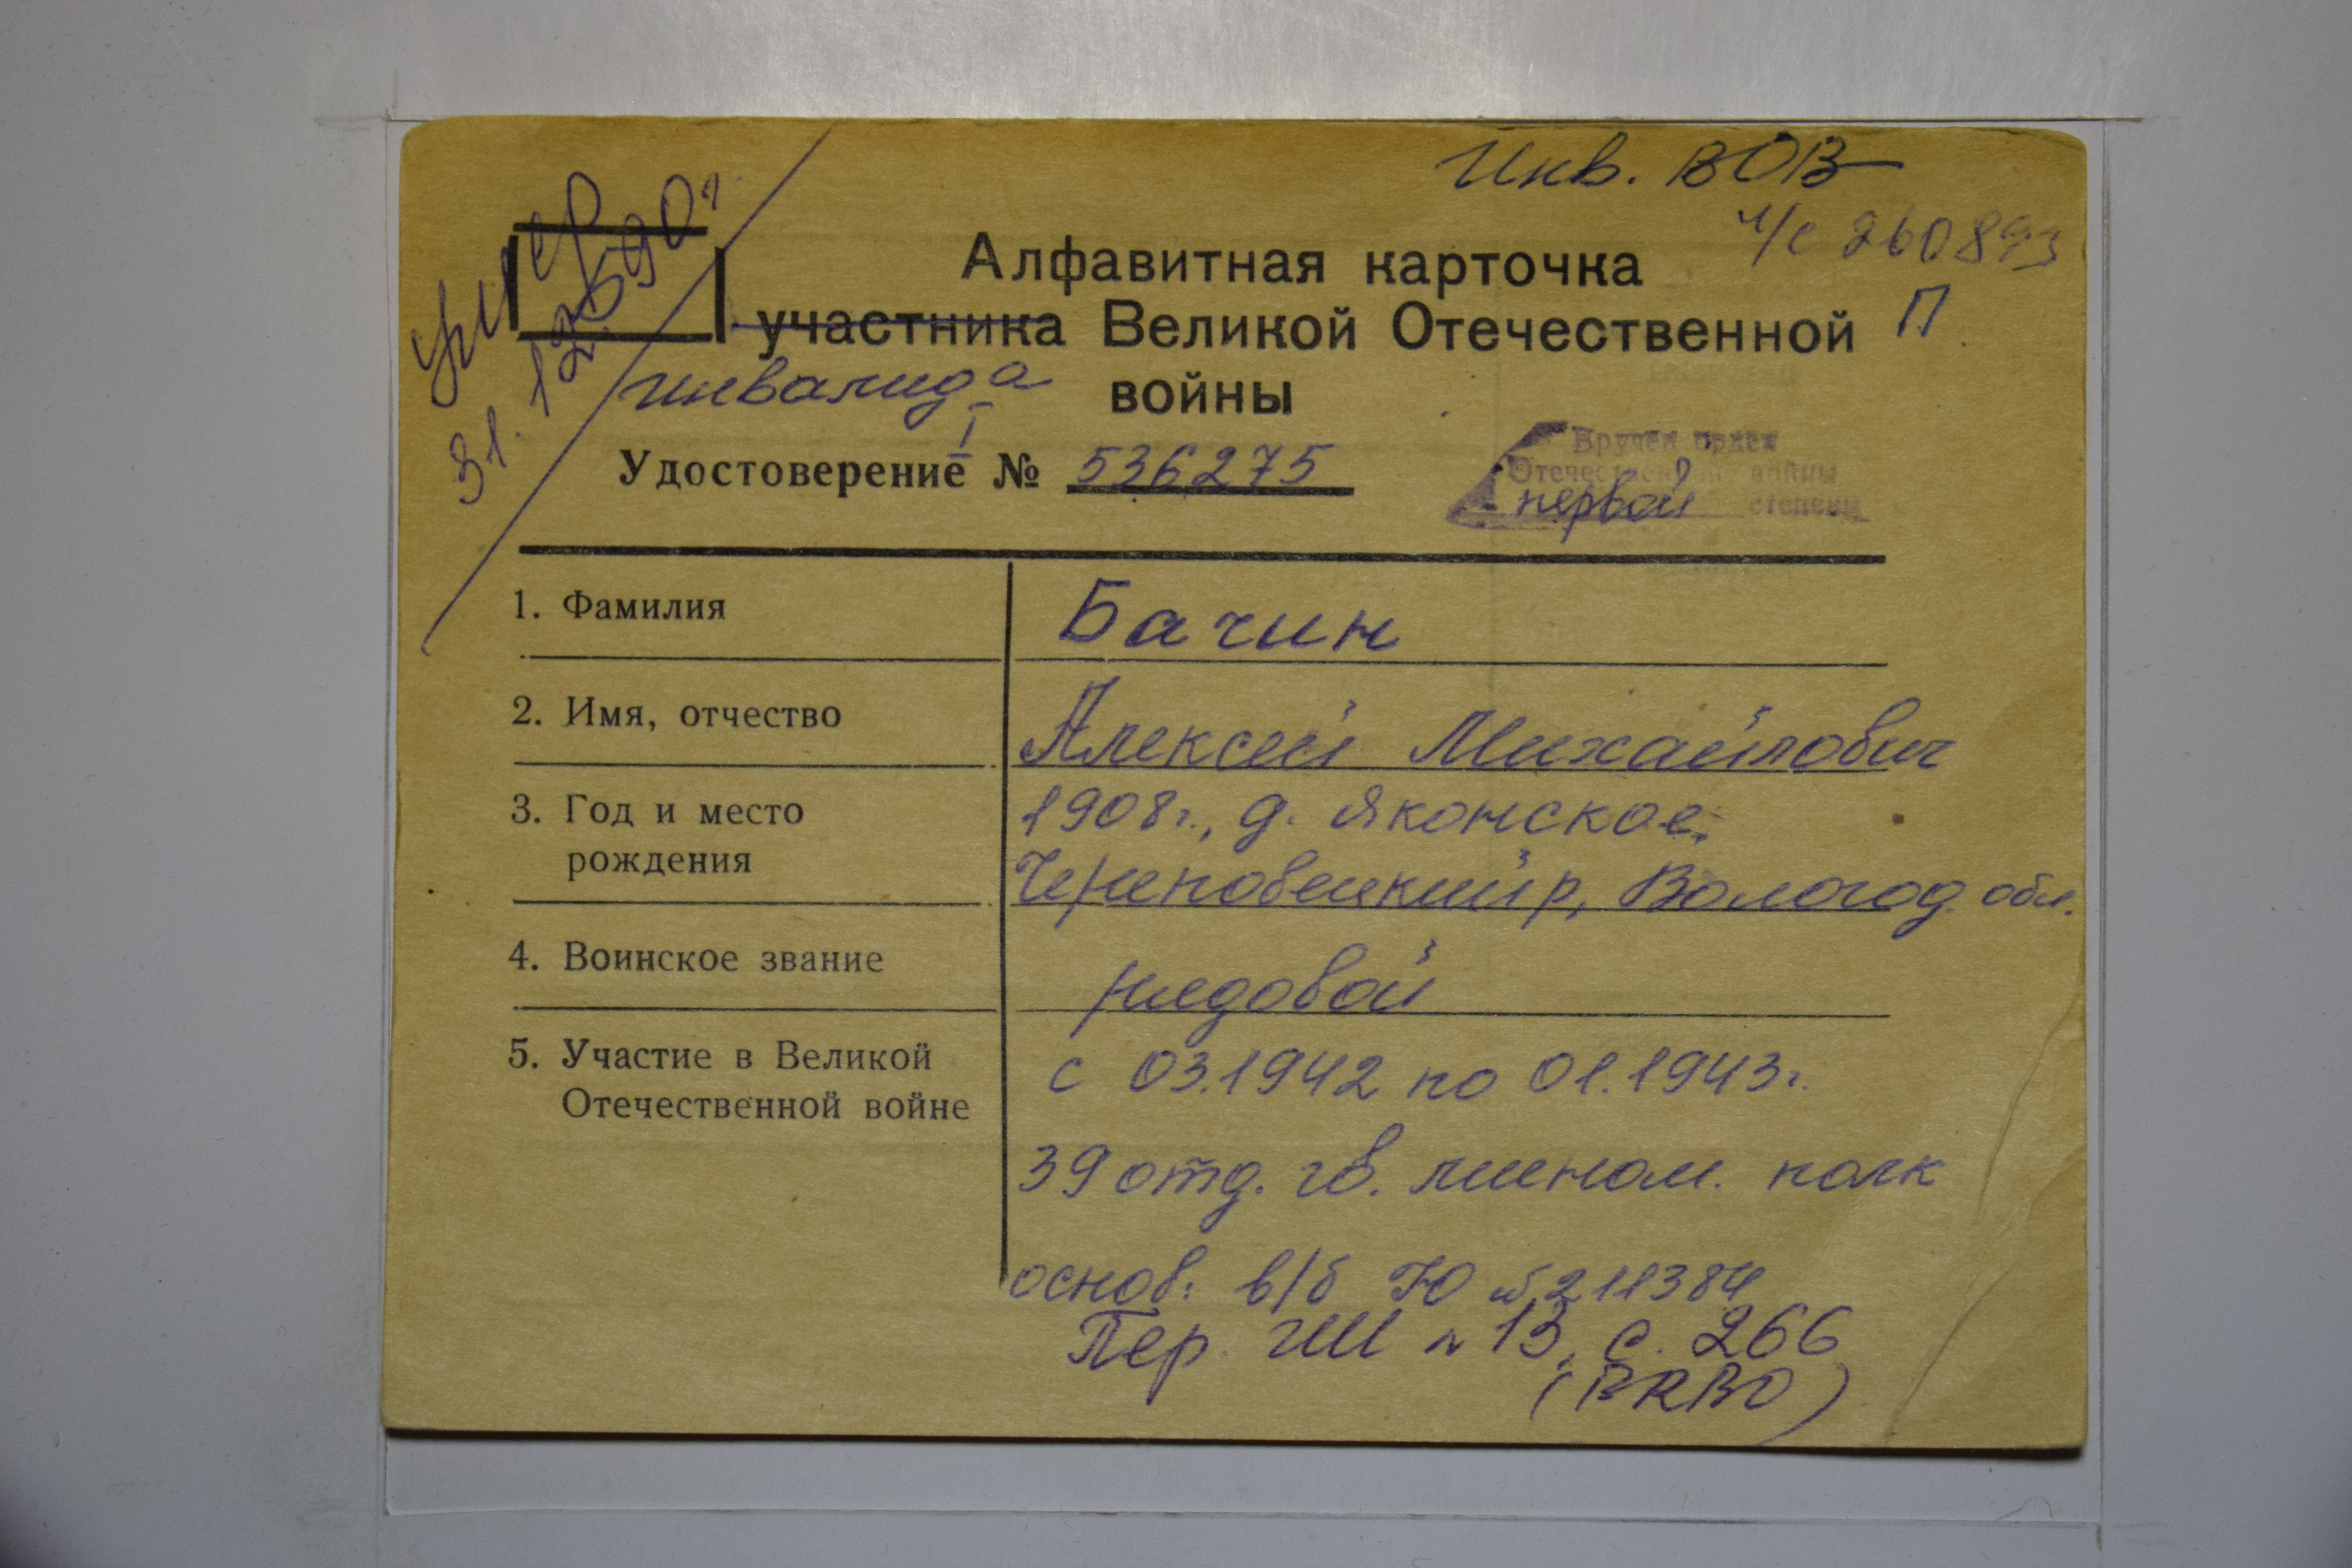 Инв. ВОВ
ч/с 260893
умер
31.12.90г
Б
Алфавитная карточка
участника Великой Отечественной П
инвалида войны
I
Удостоверение № 536275
Вручен орден
Отечественной войны
первой степени
1. Фамилия Бачин
2. Имя, отчество Алексей Михайлович
3. Год и место 1908г., д. Яконское,
рождения Череповецкий р, Вологод. обл.
4. Воинское звание рядовой
5. Участие в Великой с 03.1942 по 01.1943г.
Отечественной войне
39 отд. гв. мином. полк
основ: в/б № 211384
Пер. № 13, с. 266